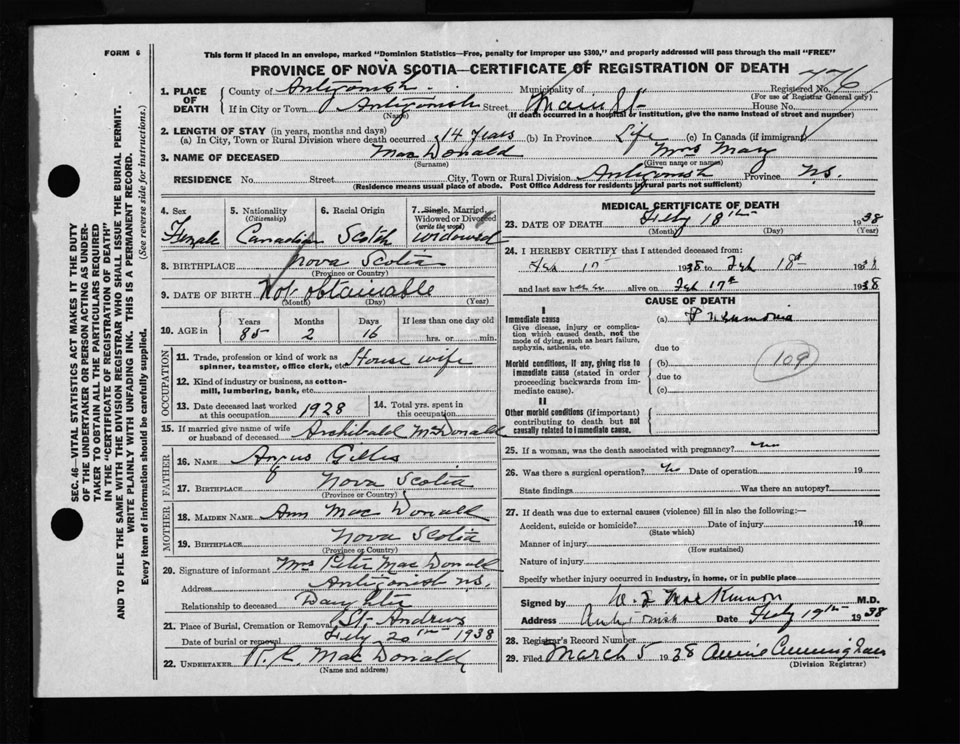 FORM 6
This form if placed in an envelope, marked "Dominion Statistics—Free, penalty for improper use $300," and properly addressed will pass through the mail "FREE"
PROVINCE OF NOVA SCOTIA—CERTIFICATE OF REGISTRATION OF DEATH
1. PLACE OF DEATH
County of Antigonish Municipality of Registered No. 776
(For use of Registrar General only)
If in City or Town Antigonish Street Main St. House No.
(Name) (If death occurred in a hospital or institution, give the name instead of street and number)
2. LENGTH OF STAY (in years, months and days)
(a) In City, Town or Rural Division where death occurred 14 years (b) In Province Life (c) In Canada (if immigrant)
3. NAME OF DECEASED MacDonald Mrs Mary
(Surname) (Given name or names)
RESIDENCE No. Street City, Town or Rural Division Antigonish Province N.S.
(Residence means usual place of abode. Post Office Address for residents in rural parts not sufficient)
4. Sex Female
5. Nationality (Citizenship) Canadian
6. Racial Origin Scotch
7. Single, Married, Widowed or Divorced (write the word) widowed
8. BIRTHPLACE Nova Scotia
(Province or Country)
9. DATE OF BIRTH Not obtainable
(Month) (Day) (Year)
10. AGE in Years 85 Months 2 Days 16 If less than one day old hrs. or min.
OCCUPATION
11. Trade, profession or kind of work as spinner, teamster, office clerk, etc. House wife
12. Kind of industry or business, as cotton-mill, lumbering, bank, etc.
13. Date deceased last worked at this occupation 1928
14. Total yrs. spent in this occupation
15. If married give name of wife or husband of deceased Archibald McDonald
FATHER
16. NAME Angus Gillis
17. BIRTHPLACE Nova Scotia
(Province or Country)
MOTHER
18. MAIDEN NAME Ann MacDonald
19. BIRTHPLACE Nova Scotia
(Province or Country)
20. Signature of informant Mrs Peter MacDonald
Address Antigonish N.S.
Relationship to deceased Daughter
21. Place of Burial, Cremation or Removal St. Andrews
Date of burial or removal Feby 20th 1938
22. UNDERTAKER MacDonald
(Name and address)
MEDICAL CERTIFICATE OF DEATH
23. DATE OF DEATH Feby 18th 1938
(Month) (Day) (Year)
24. I HEREBY CERTIFY that I attended deceased from:
Feb 1938 to Feb 18th 1938
and last saw her alive on Feb 17th 1938
CAUSE OF DEATH
I
Immediate cause
Give disease, injury or complication which caused death, not the mode of dying, such as heart failure, asphyxia, asthenia, etc.
(a) Pneumonia
due to
109
Morbid conditions, if any, giving rise to immediate cause (stated in order proceeding backwards from immediate cause).
(b)
due to
(c)
II
Other morbid conditions (if important) contributing to death but not causally related to immediate cause.
25. If a woman, was the death associated with pregnancy? No
26. Was there a surgical operation? No Date of operation 19
State findings Was there an autopsy?
27. If death was due to external causes (violence) fill in also the following:—
Accident, suicide or homicide? Date of injury 19
(State which)
Manner of injury
(How sustained)
Nature of injury
Specify whether injury occurred in industry, in home, or in public place
Signed by MacKinnon M.D.
Address Antigonish Date Feby 19th 1938
28. Registrar's Record Number
29. Filed March 5 1938 Annie Cunningham
(Division Registrar)
SEC. 46—VITAL STATISTICS ACT MAKES IT THE DUTY
OF THE UNDERTAKER OR PERSON ACTING AS UNDER-
TAKER TO OBTAIN ALL THE PARTICULARS REQUIRED
IN THE "CERTIFICATE OF REGISTRATION OF DEATH"
AND TO FILE THE SAME WITH THE DIVISION REGISTRAR WHO SHALL ISSUE THE BURIAL PERMIT.
WRITE PLAINLY WITH UNFADING INK. THIS IS A PERMANENT RECORD.
Every item of information should be carefully supplied. (See reverse side for instructions.)